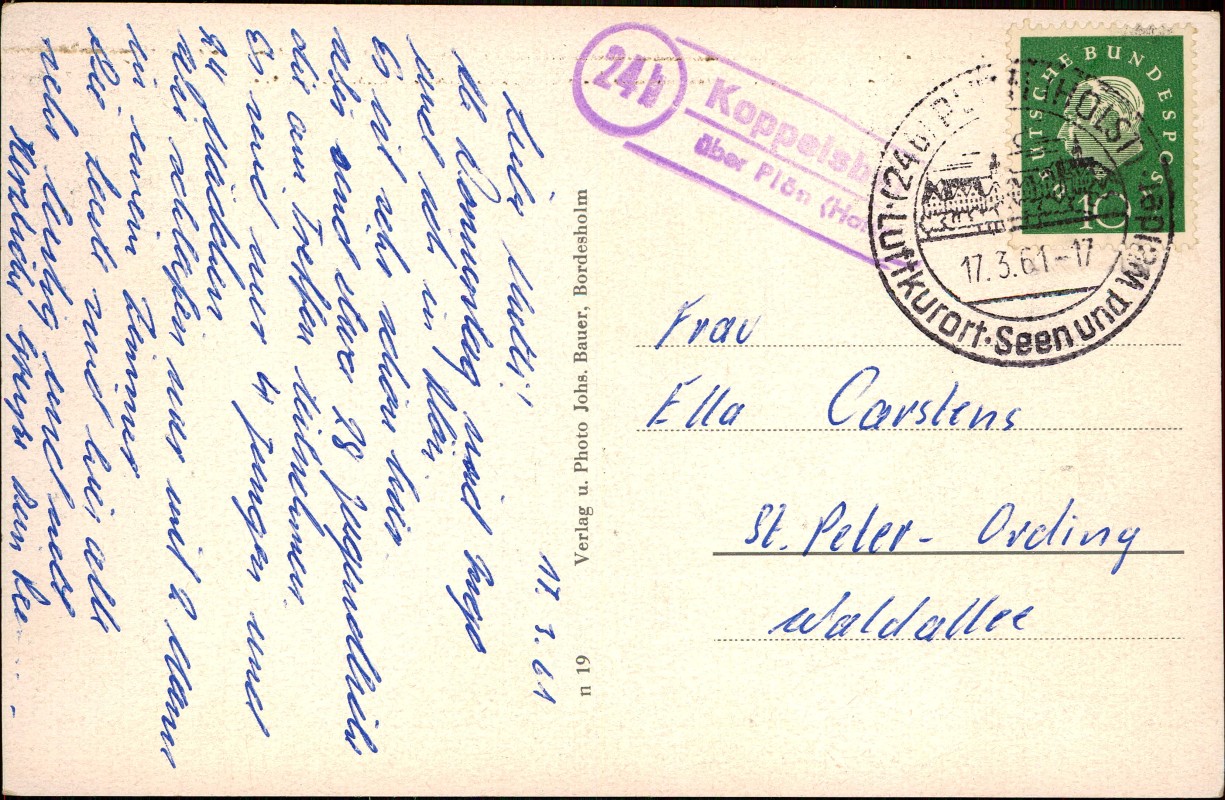 17. 3. 61
Liebe Mutti!
Am Donnerstag sind Ingo
und ich in Plön.
Es ist sehr schön hier.
sind etwa 28 Jugendliche
die am Treffen teilnehmen.
Es sind nur 4 Jungen und
24 Mädchen
schlafen wir mit 2 Mann
in einem Zimmer
Die Leute sind hier alle
sehr lustig und nett
Herzliche Grüße Dein
Verlag u. Photo Johs. Bauer, Bordesholm
n 19
24b
Koppelsb
über Plön (Hol
(24b) PLÖN (HOLST)
17.3.61-17
Luftkurort · Seen und Wälder
DEUTSCHE BUNDESPOST
10
Frau
Ella Carstens
St. Peter - Ording
Waldallee